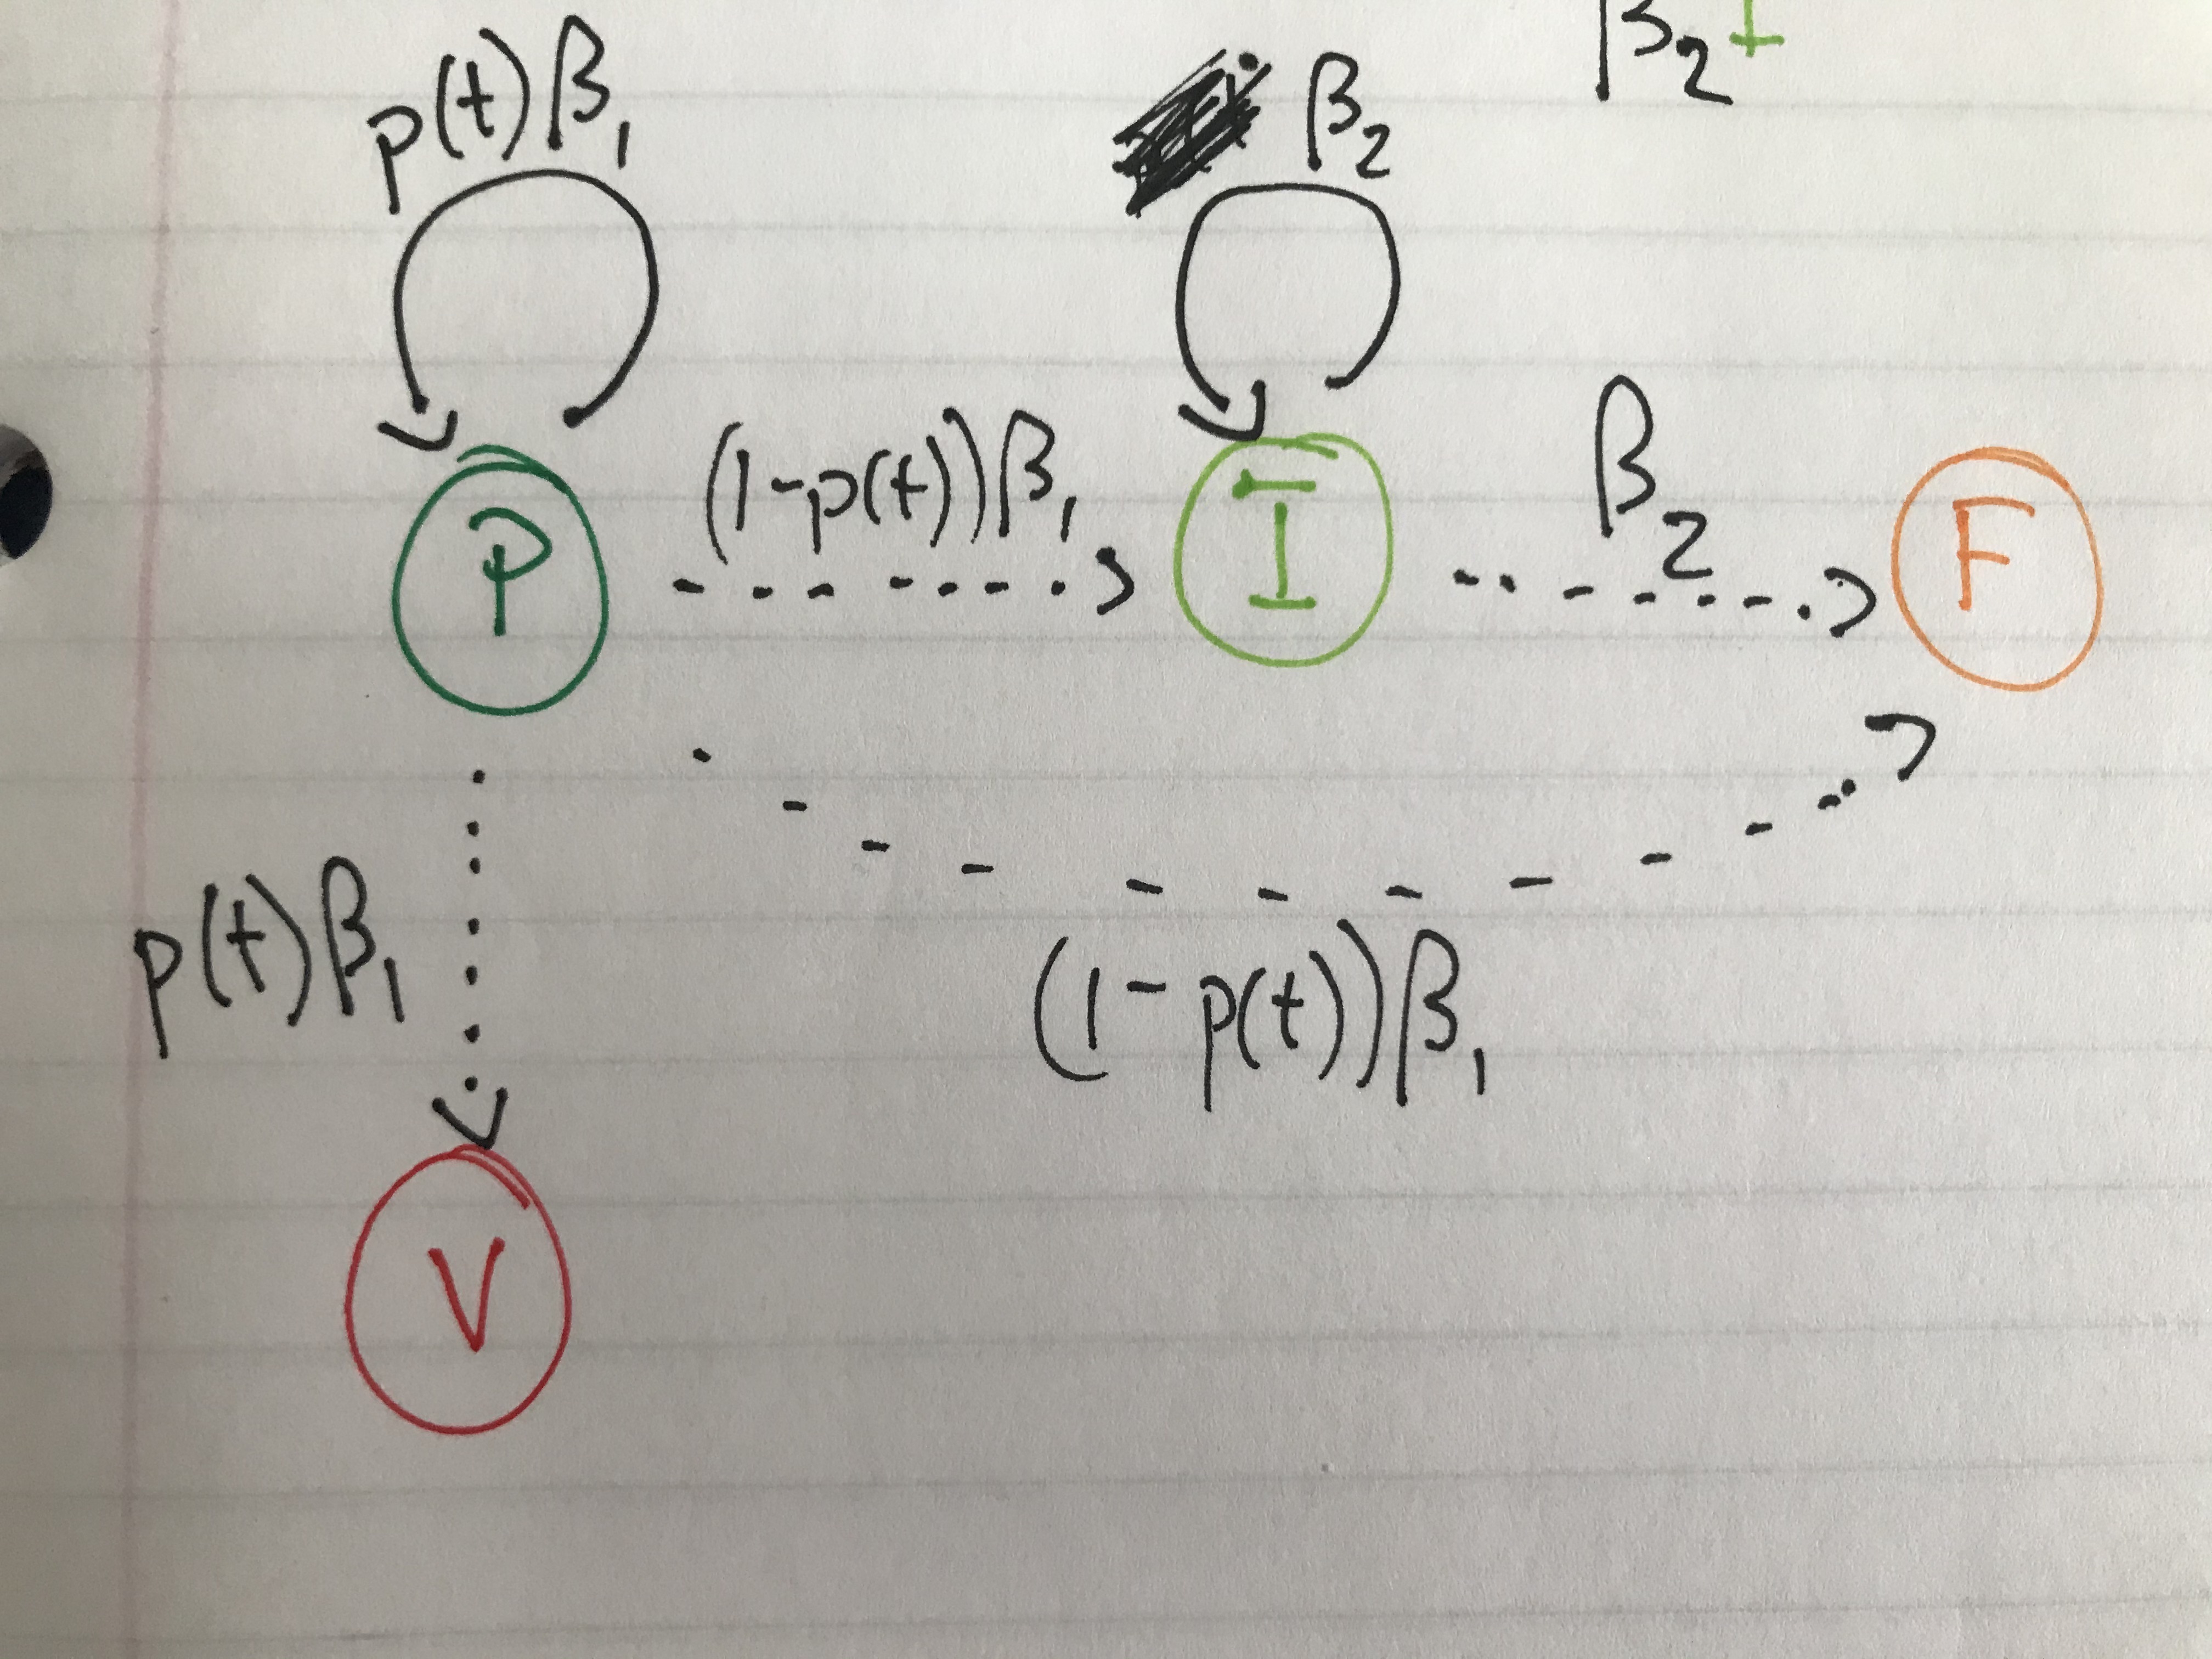 β₂I
p(t)β₁
β₂
(1-p(t))β₁
β₂
P
I
F
p(t)β₁
(1-p(t))β₁
V